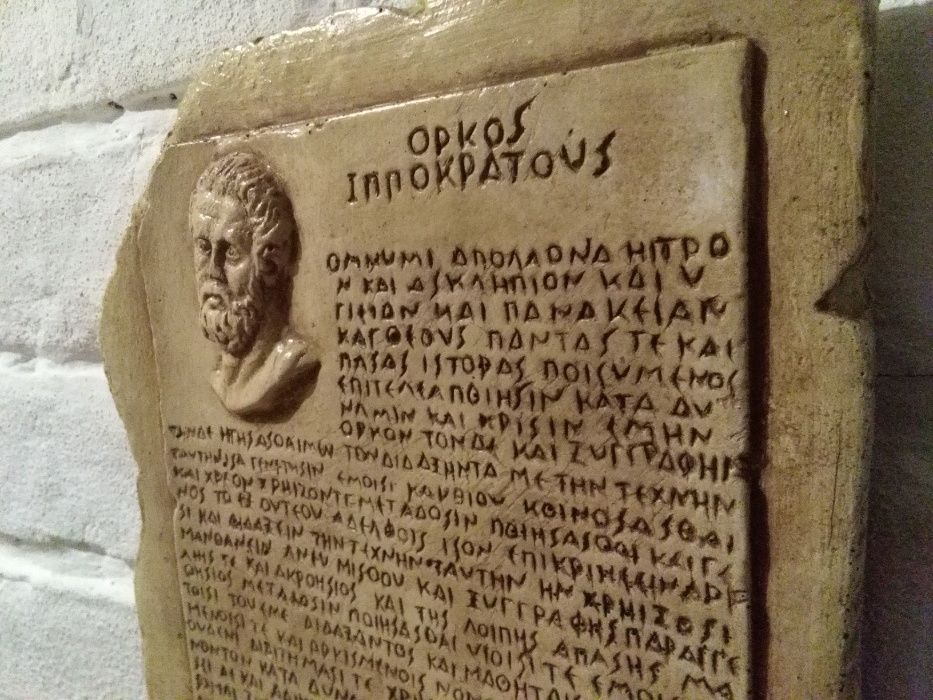 ΟΡΚΟS
ΙΠΠΟΚΡΑΤΟΥS
ΟΜΝΥΜΙ ΑΠΟΛΛΟΝΑ ΗΙΤΡΟ
Ν ΚΑΙ ΑSΚΛΗΠΙΟΝ ΚΑΙ Υ
ΓΙΕΙΑΝ ΚΑΙ ΠΑΝΑΚΕΙΑΝ
ΚΑΙ ΘΕΟΥS ΠΑΝΤΑS ΤΕ ΚΑΙ
ΠΑSΑS ΙSΤΟΡΑS ΠΟΙΕΥΜΕΝΟS
ΕΠΙΤΕΛΕΑ ΠΟΙΗSΙΝ ΚΑΤΑ ΔΥ
ΝΑΜΙΝ ΚΑΙ ΚΡΙSΙΝ ΕΜΗΝ
ΟΡΚΟΝ ΤΟΝΔΕ ΚΑΙ ΞΥΓΓΡΑΦΗΝ
ΤΗΝΔΕ ΗΓΗSΑSΘΑΙ ΜΕΝ ΤΟΝ ΔΙΔΑΞΑΝΤΑ ΜΕ ΤΗΝ ΤΕΧΝΗΝ
ΤΑΥΤΗΝ ΙSΑ ΓΕΝΕΤΗSΙΝ ΕΜΟΙSΙ ΚΑΙ ΒΙΟΥ ΚΟΙΝΟSΑSΘΑΙ
ΚΑΙ ΧΡΕΟΝ ΧΡΗΙΖΟΝΤΙ ΜΕΤΑΔΟSΙΝ ΠΟΙΗSΑSΘΑΙ ΚΑΙ ΓΕ
ΝΟS ΤΟ ΕΞ ΟΥΤΕΟΥ ΑΔΕΛΦΟΙS ΙSΟΝ ΕΠΙΚΡΙΝΕΕΙΝ ΑΡΕ
SΙ ΚΑΙ ΔΙΔΑΞΕΙΝ ΤΗΝ ΤΕΧΝΗΝ ΤΑΥΤΗΝ ΗΝ ΧΡΗΙΖΟSΙ
ΜΑΝΘΑΝΕΙΝ ΑΝΕΥ ΜΙSΘΟΥ ΚΑΙ ΞΥΓΓΡΑΦΗS ΠΑΡΑΓΓΕ
ΛΙΗS ΤΕ ΚΑΙ ΑΚΡΟΗSΙΟS ΚΑΙ ΤΗS ΛΟΙΠΗS ΑΠΑSΗS ΜΑ
ΘΗSΙΟS ΜΕΤΑΔΟSΙΝ ΠΟΙΗSΑSΘΑΙ ΥΙΟΙSΙ ΤΕ ΕΜΟΙSΙ
ΤΟΙSΙ ΤΟΥ ΕΜΕ ΔΙΔΑΞΑΝΤΟS ΚΑΙ ΜΑΘΗΤΑΙS
ΜΕΝΟΙSΙ ΤΕ ΚΑΙ ΟΡΚΙSΜΕΝΟΙS ΝΟΜΟ
ΟΥΔΕΝΙ ΔΙΑΙΤΗΜΑSΙ ΤΕ ΧΡΗ
ΚΑΤΑ ΔΥΝΑ